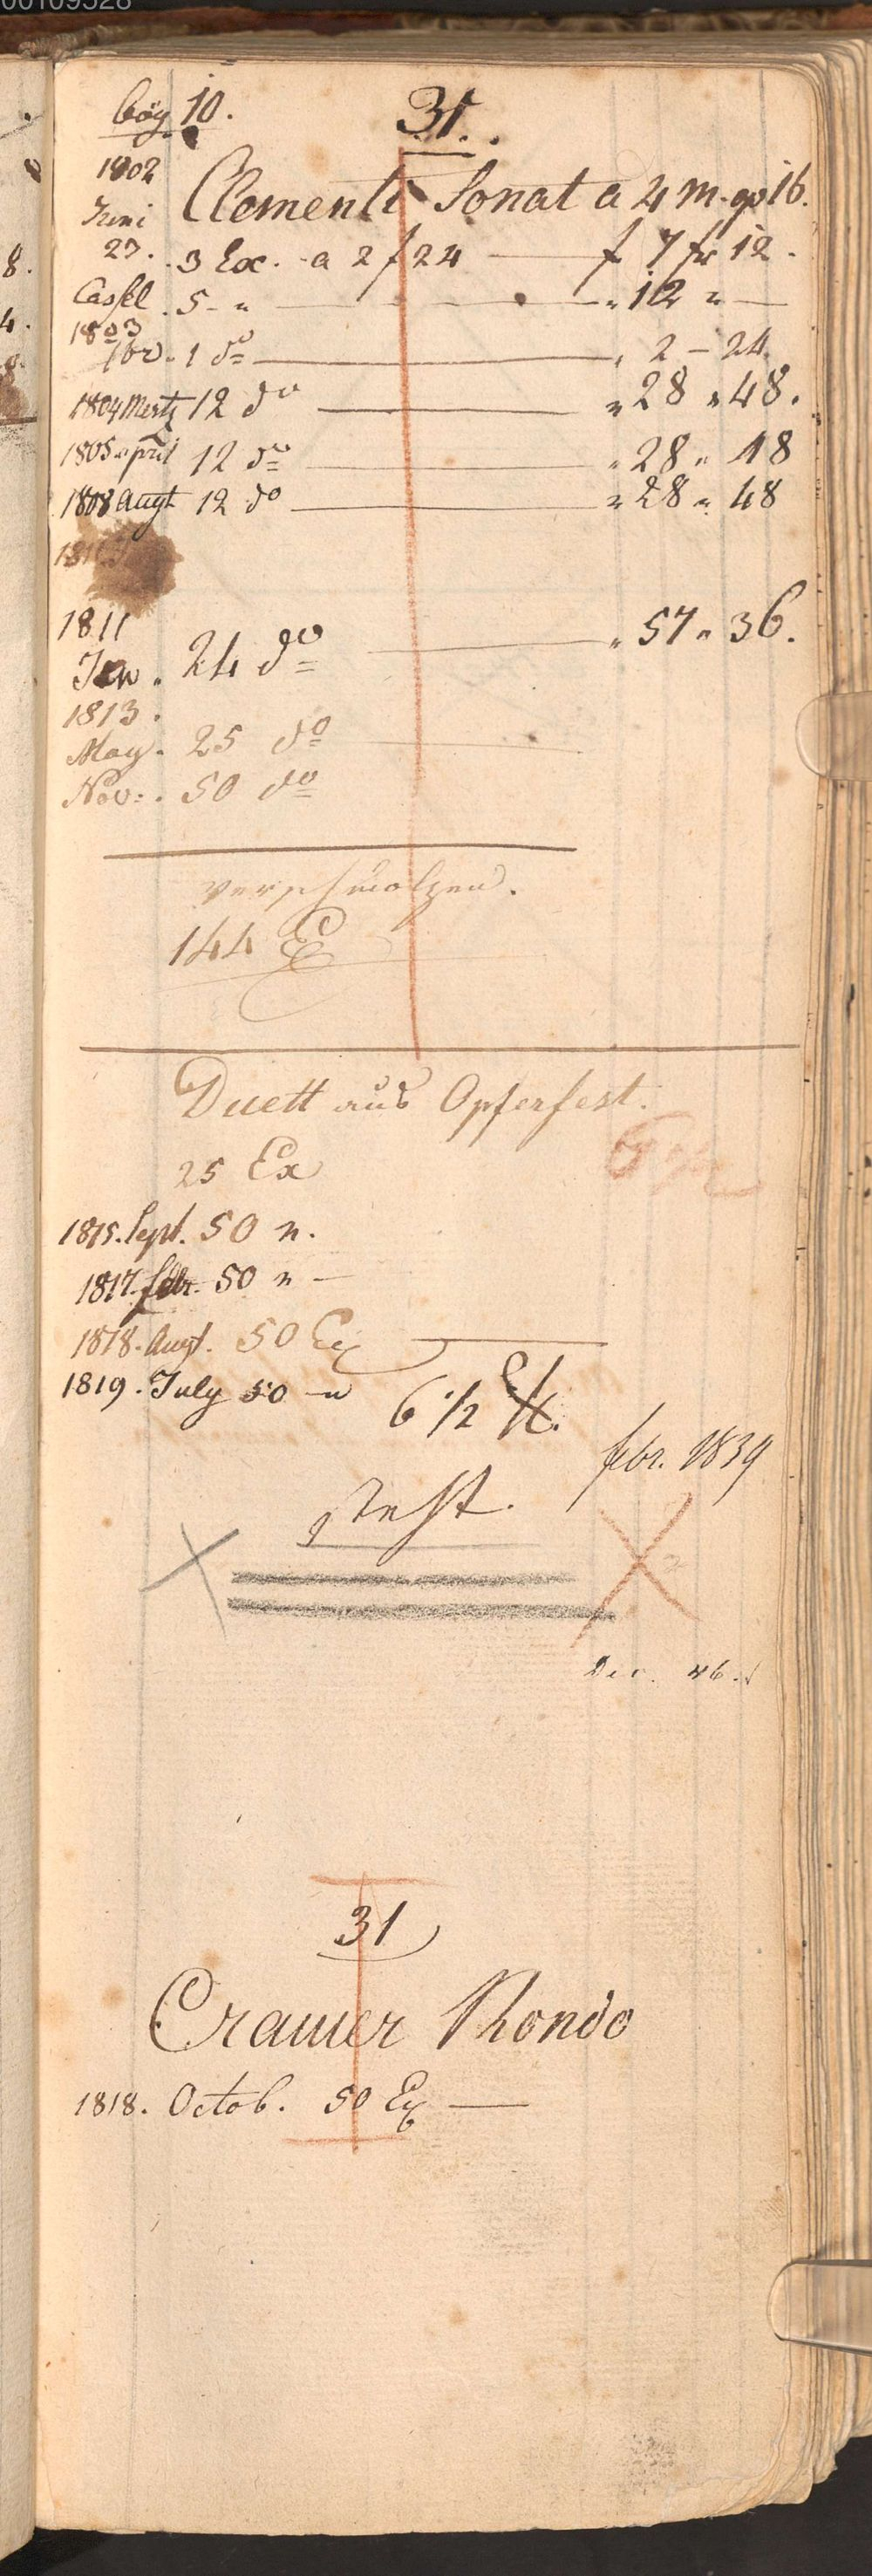 00109528
bög 10.
31.
1802
Juni
Clementi Sonat a 4 m. op 16.
27. 3 Ex. a 2 f 24 f 7 fr 12.
Cassel 5 - " " 12 " —
1803
1br. 1 do " 2 - 24
1804 Mertz 12 do " 28 " 48.
1805 april 12 do " 28 " 48
1808 Augt 12 do " 28 " 48
1811
Jan. 24 do " 57 " 36.
1813.
May. 25 do
Nov: . 50 do
verschmolzen.
144 E
Duett aus Opferfest.
25 Ex
1815. Sept. 50 n.
1817. febr. 50 n —
1818. Augt. 50 Ex
1819. July 50 — n 6 1/2 ℔.
febr. 1839
steht.
Dec. 46.
31
Cramer Rondo
1818. Octob. 50 Ex —